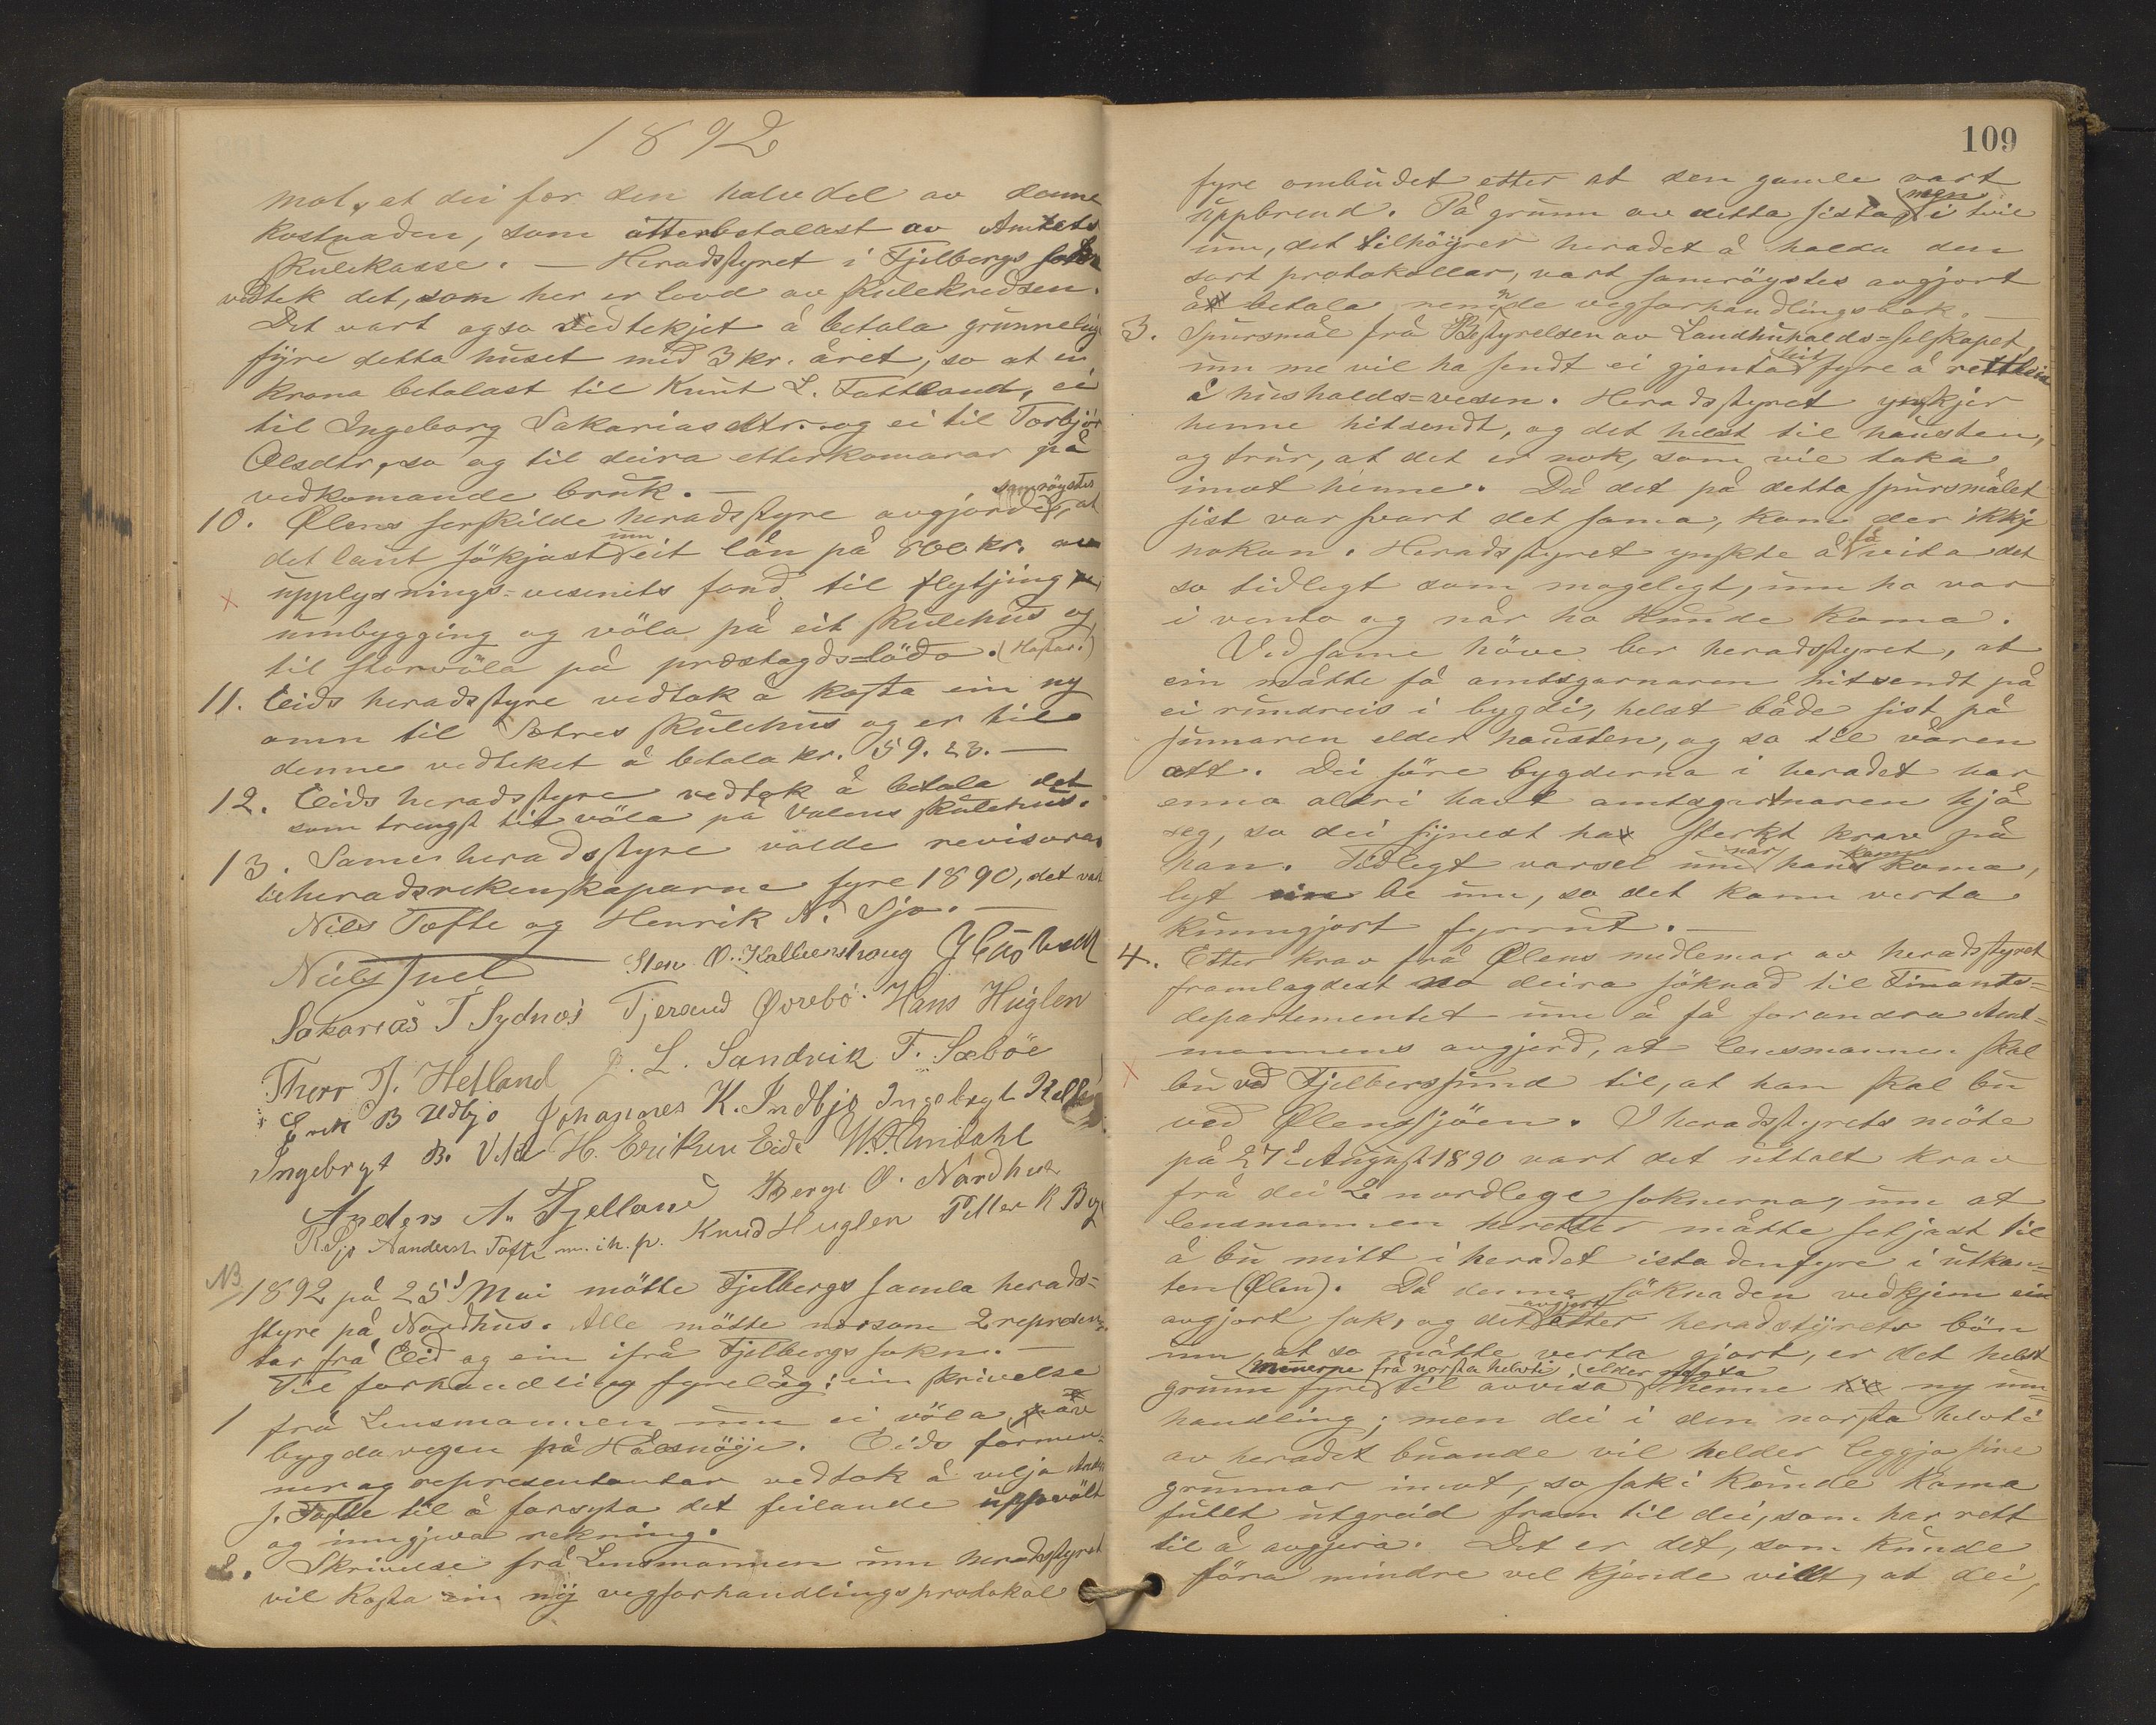 1892
mot, at dei fær den halve del av denne
kostnaden, som atterbetalast av Amtets
skulekasse. — Heradstyret i Fjelbergs sokn
vedtek det, som her er lovd av skulekredsen.
Det vart ogso vedtekjet å betala grunneleig
fyre detta huset med 3 kr. året, so at ei
krona betalast til Knut L. Tattland, ei
til Ingeborg Sakariasdtr. og ei til Torbjør
Olsdtr, so og til deira etterkomarar på
vedkomande bruk. —
10. Ølens serskilde heradsstyre avgjorde samrøystes, at
det laut søkjast um eit lån på 800 kr. av
upplysnings-vesenets fond til flytjing
umbygging og vøla på eit skulehus og
til storvøla på præstegds-løda.
11. Eids heradsstyre vedtok å kosta ein ny
omn til Sætres skulehus og er til
denne vedteket å betala kr. 59.23. —
12. Eids heradsstyre vedtok å betala det
som trengst til vøla på Valens skulehus.
13. Same heradsstyre valde revisorar
til heradsrekenskaparne fyre 1890, det vart
Nils Tofte og Henrik N. Sjo. —
Niels Juel Sten O. Kallevenshaug
Sakarias T Sydnæs Tjerand Øvrebø. Hans Huglen
Thorr T. Hetland J. L. Sandvik T. Sæbøe
Erik B Udbjo Johannes K. Indbjo Ingebrygt
Ingebrygt B. H. Eriksen Eide
Anders A. Fjelland Berge O. Nordhus
R. Sjo Anders J. Tofte m. i. h. p. Knud Huglen Petter R
NB
1892 på 25d Mai møtte Fjelbergs samla herads-
styre på Nordhus. Alle møtte norsom 2 represen-
tar frå Eid og ein ifrå Fjelbergs sokn. —
Til forhandling fyrelåg: ein skrivelse
1 frå Lensmannen um ei vøla på
bygdavegen på Halsnøyje. Eids formen-
ner og representantar vedtok å velja
J. Tofte til å forsyta det feilande uppvølt
og inngjeva rekning.
2. Skrivelse frå Lensmannen um heradsstyret
vil kosta ein ny vegforhandlingsprotokol
109
fyre ombudet etter at den gamle vart
uppbrend. På grunn av detta sista, men i tvil
um, det tilhøyrer heradet å halda den
sort protokollar, vart samrøystes avgjort
å betala nemnde vegforhandlingsbok. —
3. Spursmål frå Bestyrelsen av Landhusholds-selskapet,
um me vil ha sendt ei gjenta hit fyre å rettleia
i husholds-vesen. Heradsstyret ynskjer
henne hitsendt, og det helst til hausten,
og trur, at det er nok, som vil taka
imot henne. Då det på detta spursmålet
sist var svart det sama, kom der ikkje
nokon. Heradsstyret ynskte å få vita det
so tidlegt som mogelegt, um ho var
i venta og når ho kunde koma.
Ved same høve ber heradsstyret, at
ein måtte få amtsgarnaren hitsendt på
ei rundreis i bygdi, helst både sist på
sumaren elder hausten, og so til våren
att. Dei søre bygderna i heradet har
enno aldri havt amtsgartnaren hjå
seg, so dei synest ha sterkt krav på
han. Tidlegt varsel um når han kann koma,
lyt ein be um, so det kann verta
kunngjort fyreut. —
4. Etter krav frå Ølens medlemar av heradsstyret
framlagdest no deira søknad til Finants-
departementet um å få forandra Amt-
mannens avgjerd, at lensmannen skal
bu ved Fjelbergssund til, at han skal bu
ved Ølenssjøen. I heradsstyrets møte
på 27d August 1890 vart det uttalt krav
frå dei 2 nordlege soknerna, um at
lensmannen heretter måtte setjast til
å bu mitt i heradet istadenfyre i utkan-
ten (Ølen). Då denne søknaden vedkjem ein
avgjort sak, og det avgjort etter heradstyrets bøn
um, at so måtte verta gjort, er det helst
grunn fyre til avvisa elder negta henne ny um-
handling; men dei i den norsta helvti
av heradet buande vil helder leggja sine
grunnar imot, so saki kunde koma
fullt utgreid fram til dei, som har rett
til å avgjera. Det er det, som kunde
føra mindre vel kjende villt, at dei,